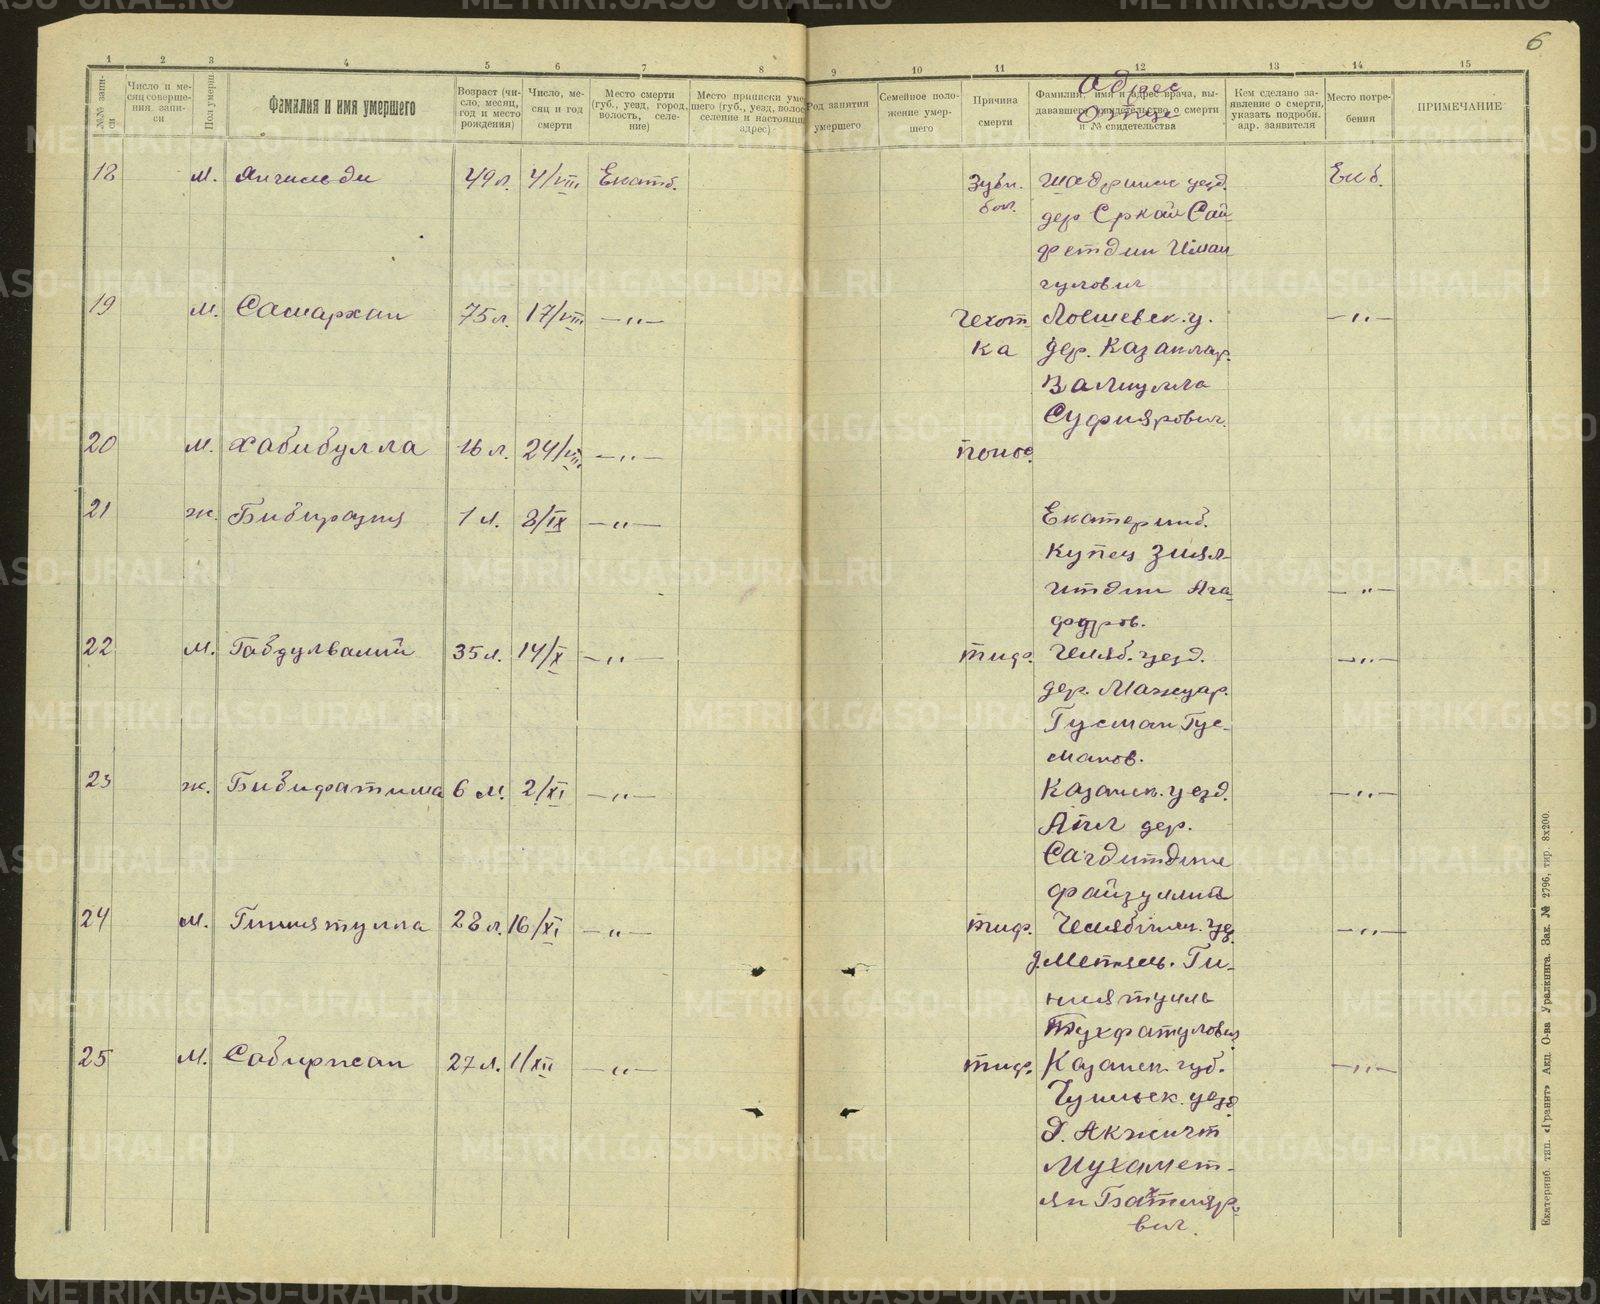 6
1 2 3 4 5 6 7 8 9 10 11 12 13 14 15
№№ записи
Число и месяц совершения записи
Пол умерш.
Фамилия и имя умершего
Возраст (число, месяц, год и место рождения)
Число, месяц и год смерти
Место смерти (губ., уезд, город, волость, селение)
Место приписки умершего (губ., уезд, волос селение и настоящий адрес)
Род занятия умершего
Семейное положение умершего
Причина смерти
Фамилия, имя и адрес врача, выдававшего свидетельство о смерти и № свидетельства
Адрес
отца
Кем сделано заявление о смерти, указать подробн. адр. заявителя
Место погребения
ПРИМЕЧАНИЕ
18 м. 49 л. 4/VIII Екатб. Зубн. Шадринск уезд. Екб.
бол. дер Сай
фетдин Иман
гулович
19 м. Самархан 75 л. 17/VIII —„— Чехот у. —„—
ка дер. Казаклар.
Валиулла
Суфиярович.
20 м. Хабибулла 16 л. 24/VIII —„— понос.
21 ж. 1 л. 8/IX —„— Екатеринб.
купец Зиял-
итдин Ага- —„—
фуров.
22 м. Габдулвалий 35 л. 14/X —„— тиф. Челяб. уезд. —„—
дер.
Гусман Гус-
манов.
23 ж. Бибифатима 6 м. 2/XI —„— Казанск. уезд. —„—
дер.
Сагдитдин
Файзуллин
24 м. Гиниятулла 28 л. 16/XI —„— тиф. Челябинск. уез. —„—
Ги-
ниятулла
Тухфатулович
25 м. 27 л. 1/XII —„— тиф. Казанск. губ. —„—
уезд
д.
Мухамет-
ян
вич
Екатеринб. тип. «Гранит» Акц. О-ва Уралкнига. Зак. № 2796, тир. 8х200.
METRIKI.GASO-URAL.RU